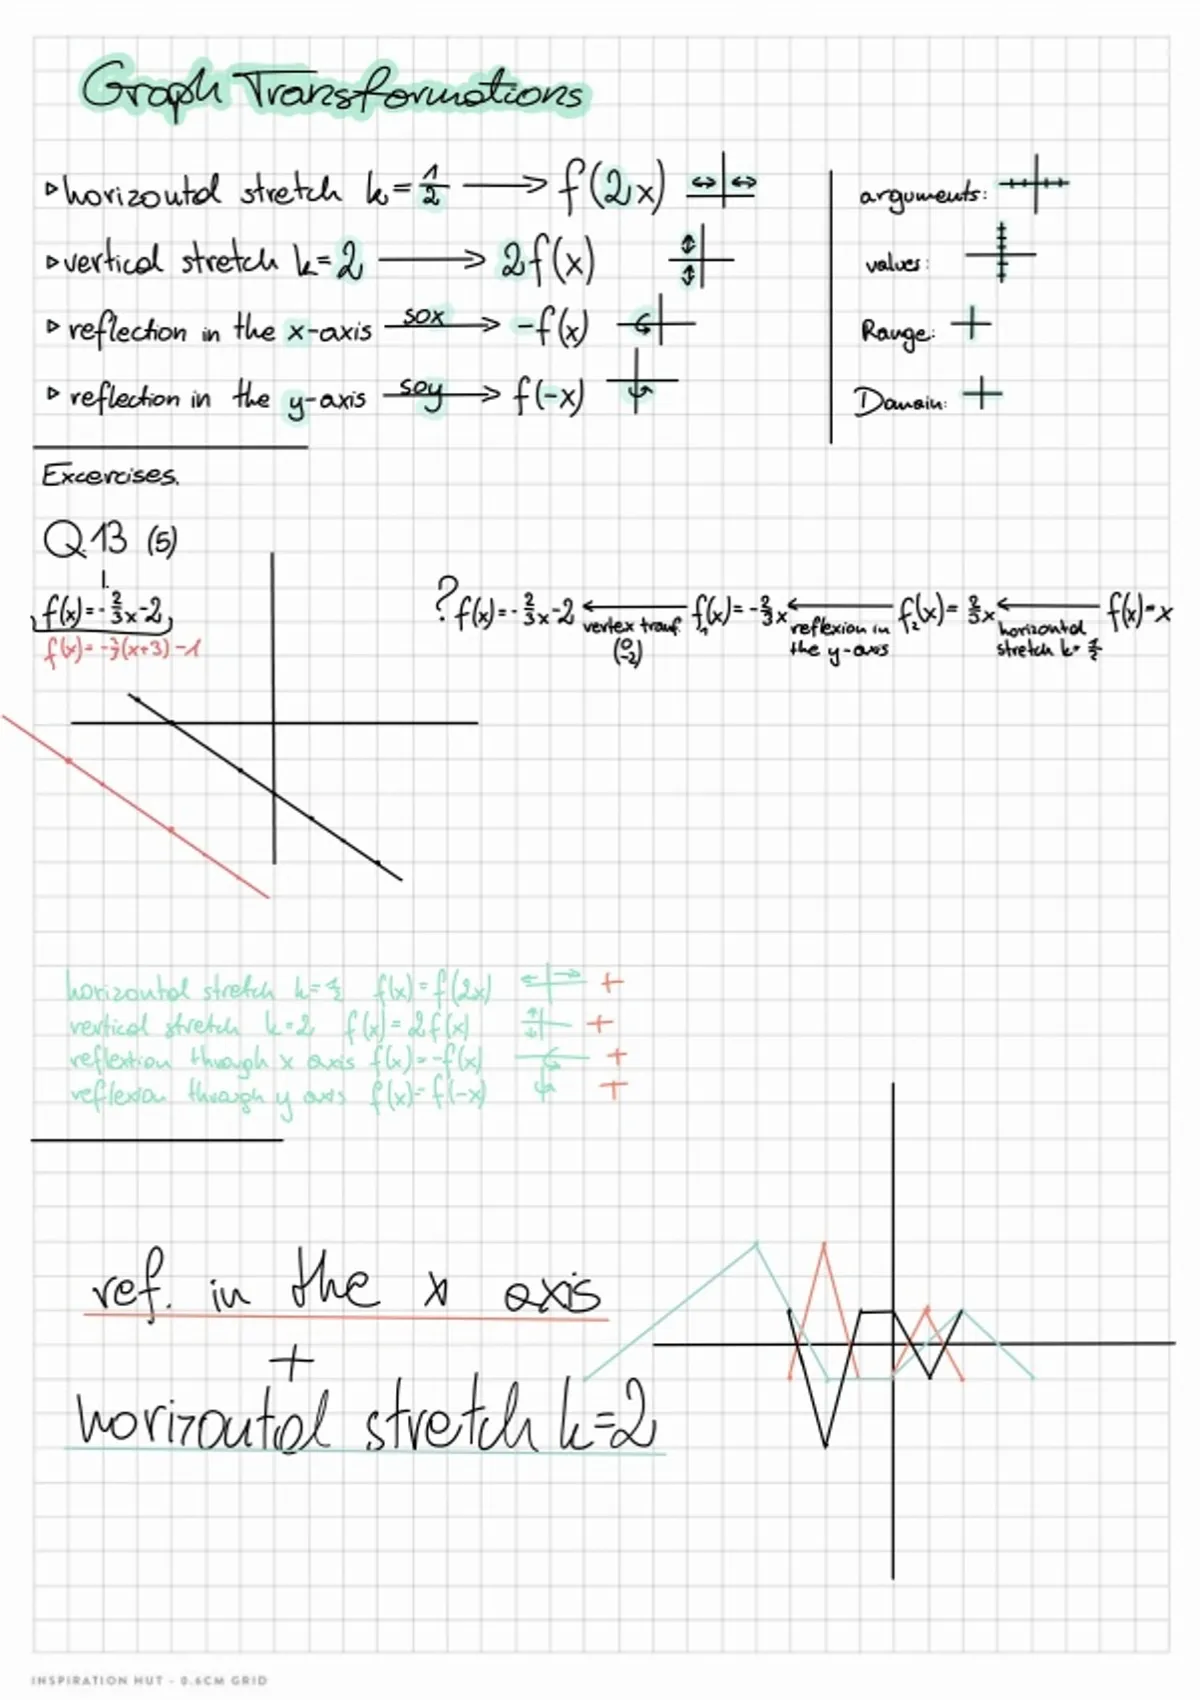 Graph Transformations
▹ horizontal stretch k = 1/2 ⟶ f(2x)
▹ vertical stretch k = 2 ⟶ 2f(x)
▹ reflection in the x-axis sox ⟶ -f(x)
▹ reflection in the y-axis soy ⟶ f(-x)
arguments:
values:
Range:
Domain:
Excercises.
Q.13 (5)
1.
f(x) = -2/3x-2
f(x) = -2/3(x+3) -1
? f(x) = -2/3x-2 ⟵ f₁(x) = -2/3x ⟵ f₂(x) = 2/3x ⟵ f(x) = x
vertex tranf. (0 -2)
reflexion in the y-axis
horizontal stretch k=
horizontal stretch k = 1/2 f(x) = f(2x)
vertical stretch k=2 f(x) = 2f(x)
reflextion through x axis f(x) = -f(x)
reflexion through y axis f(x) = f(-x)
ref. in the x axis
+
horizontal stretch k=2
INSPIRATION HUT - 0.6CM GRID